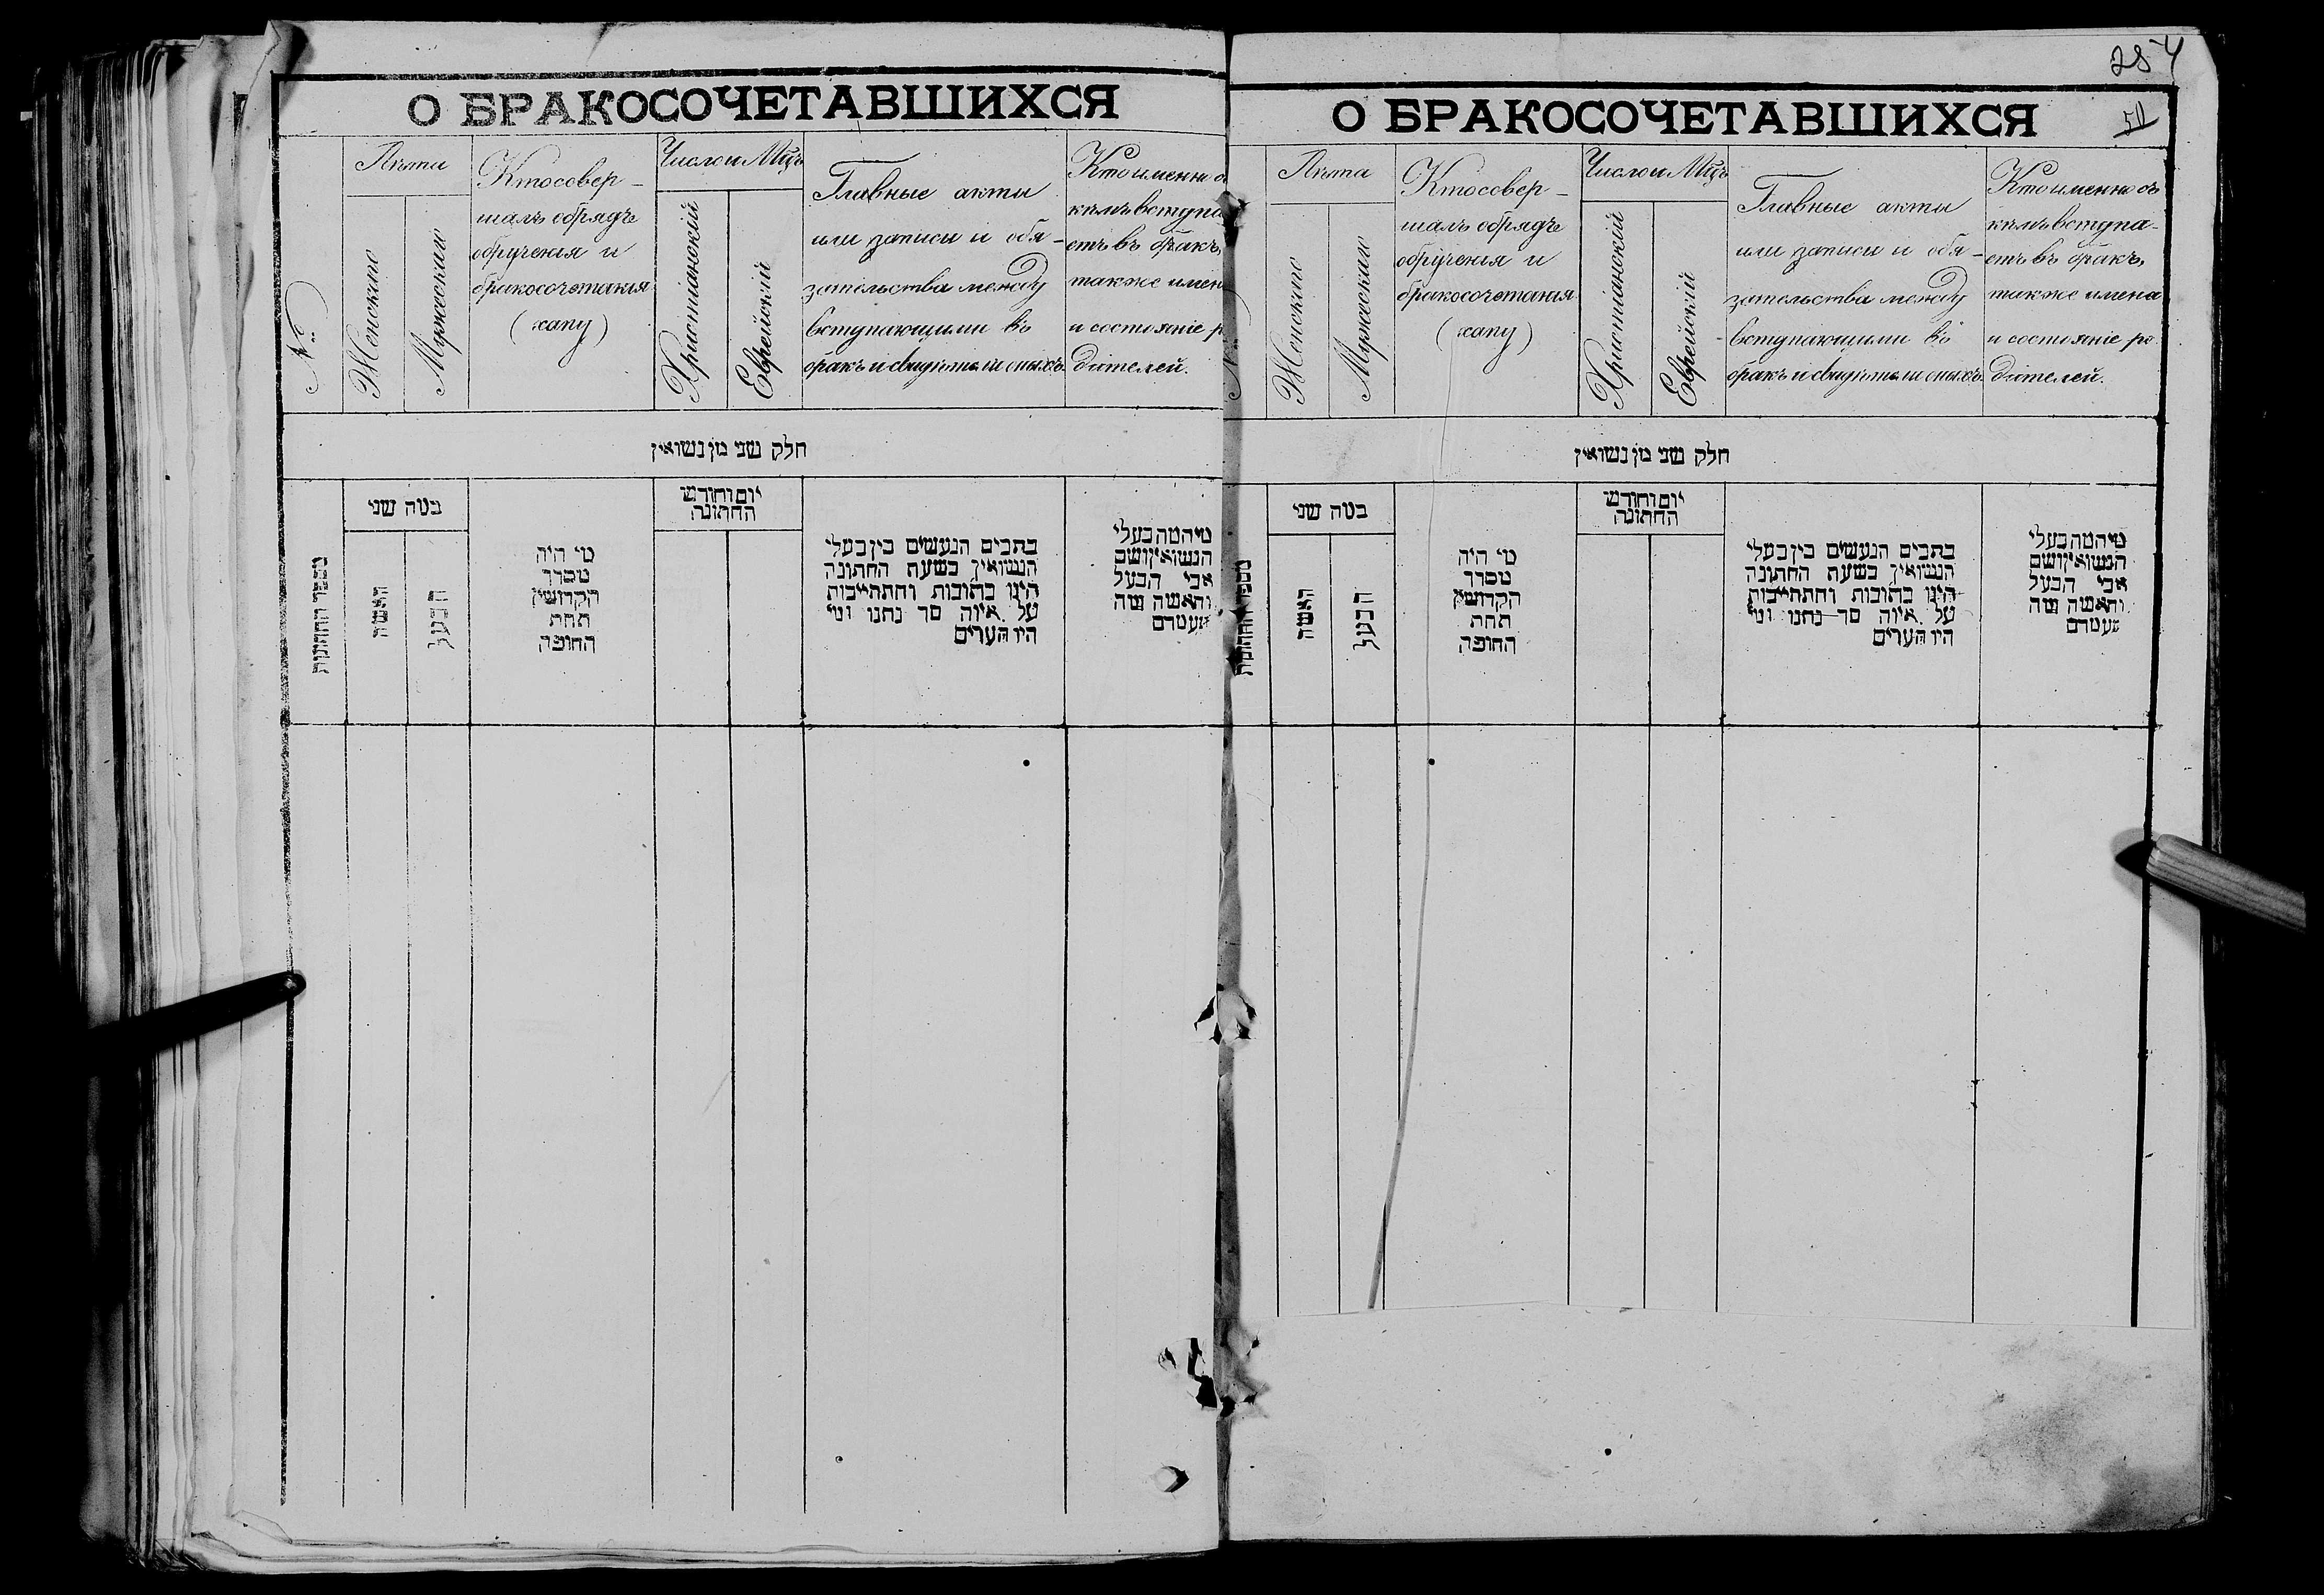 О БРАКОСОЧЕТАВШИХСЯ
№
Лѣта
Женскаго
Мужескаго
Кто совер-
шалъ обрядъ
обрученія и
бракосочетанія
(хапу)
Число и Мцъ
Христіанскій
Еврейскій
Главные акты
или записи и обя-
зательства между
вступающими въ
бракъ и свидѣтели оныхъ.
Кто именно съ
кѣмъ вступа
етъ въ бракъ,
также имен
и состояніе р
дителей.
חלק שני מן נשואין
מספר החתונות
כמה שני
האשה
הבעל
מי היה
מסדר
הקדושין
תחת
החופה
יום וחודש
החתונה
כתבים הנעשים בין בעלי
הנשואין בשעת החתונה
היינו כתובות והתחייבות
על איזה סך נתנו ומי
היו הערים
מי המה בעלי
הנשואין ושם
אבי הבעל
והאשה ומה
מעמדם
284
50
О БРАКОСОЧЕТАВШИХСЯ
Лѣта
Женскаго
Мужескаго
Кто совер-
шалъ обрядъ
обрученія и
бракосочетанія
(хапу)
Число и Мцъ
Христіанскій
Еврейскій
Главные акты
или записи и обя-
зательства между
вступающими въ
бракъ и свидѣтели оныхъ.
Кто именно съ
кѣмъ вступа-
етъ въ бракъ,
также имена
и состояніе ро-
дителей.
חלק שני מן נשואין
מספר החתונות
כמה שני
האשה
הבעל
מי היה
מסדר
הקדושין
תחת
החופה
יום וחודש
החתונה
כתבים הנעשים בין בעלי
הנשואין בשעת החתונה
היינו כתובות והתחייבות
על איזה סך נתנו ומי
היו הערים
מי המה בעלי
הנשואין ושם
אבי הבעל
והאשה ומה
מעמדם